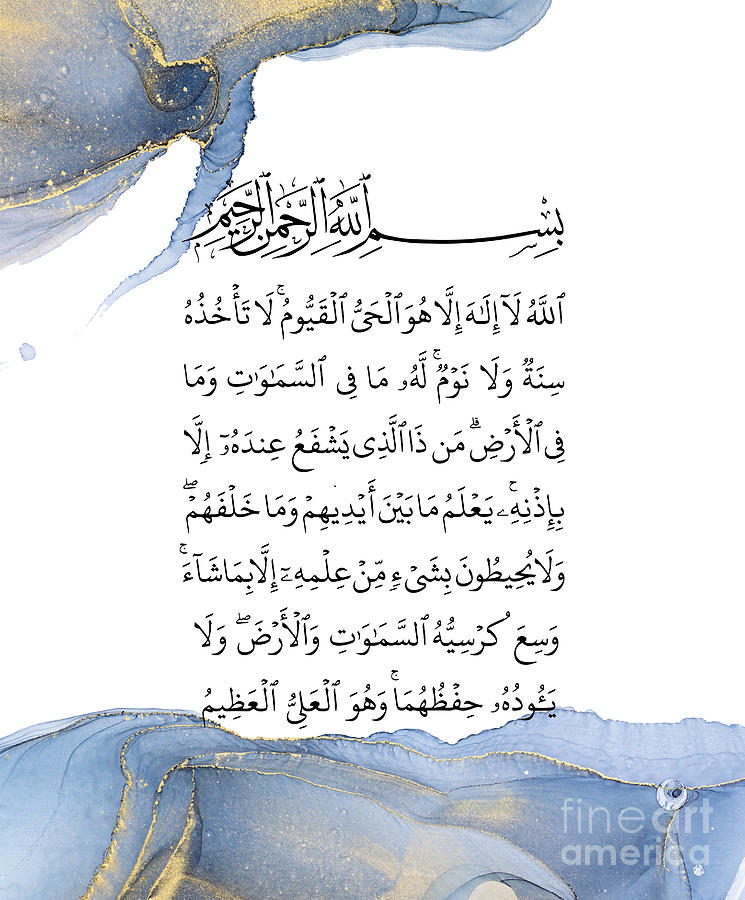 بِسْمِ ٱللَّهِ ٱلرَّحْمَٰنِ ٱلرَّحِيمِ
ٱللَّهُ لَآ إِلَـٰهَ إِلَّا هُوَ ٱلْحَىُّ ٱلْقَيُّومُ ۚ لَا تَأْخُذُهُۥ
سِنَةٌ وَلَا نَوْمٌ ۚ لَّهُۥ مَا فِى ٱلسَّمَـٰوَٰتِ وَمَا
فِى ٱلْأَرْضِ ۗ مَن ذَا ٱلَّذِى يَشْفَعُ عِندَهُۥٓ إِلَّا
بِإِذْنِهِۦ ۚ يَعْلَمُ مَا بَيْنَ أَيْدِيهِمْ وَمَا خَلْفَهُمْ ۖ
وَلَا يُحِيطُونَ بِشَىْءٍ مِّنْ عِلْمِهِۦٓ إِلَّا بِمَا شَآءَ ۚ
وَسِعَ كُرْسِيُّهُ ٱلسَّمَـٰوَٰتِ وَٱلْأَرْضَ ۖ وَلَا
يَـُٔودُهُۥ حِفْظُهُمَا ۚ وَهُوَ ٱلْعَلِىُّ ٱلْعَظِيمُ
fineart
america